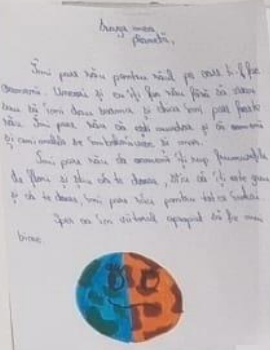 Draga mea
planetă,
Îmi pare rău pentru răul pe care ți-l fac
oamenii. Uneori și eu îți fac rău fără să vreau
sau să îmi dau seama și chiar îmi pare foarte
rău. Îmi pare rău că ești murdară și că oamenii
și animalele se îmbolnăvesc și mor.
Îmi pare rău că oamenii îți rup frumusețile
de flori și știu că te doare, știu că îți este greu
și că te doare, îmi pare rău pentru tot ce înduri
Sper ca în viitorul apropiat să fie mai
bine